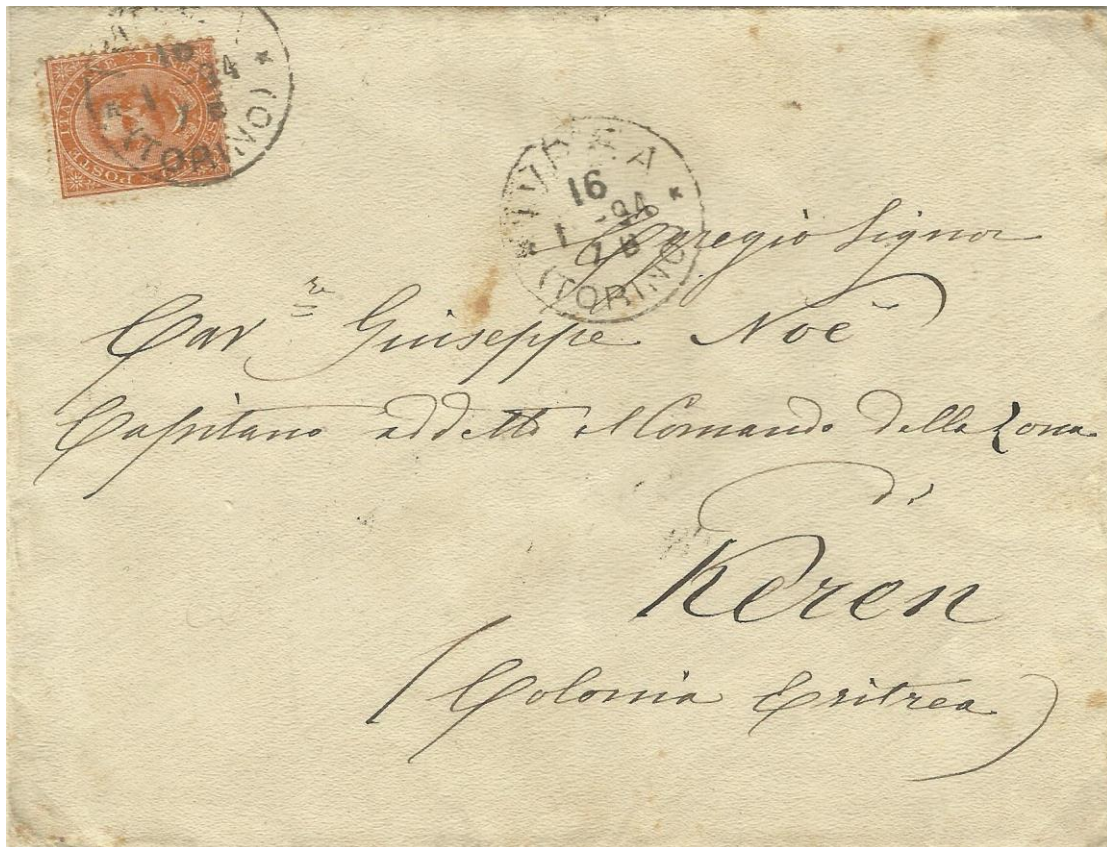 POSTE ITALIANE
(TORINO)
IVREA
16
1 -94
7 S
(TORINO)
Egregio Signor
Cav.re Giuseppe Noè
Capitano addetto al Comando della Zona
di
Keren
(Colonia Eritrea)